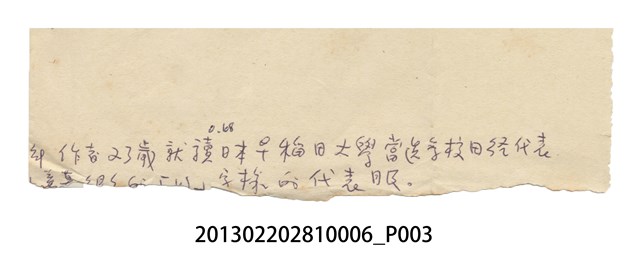 0.68
作者23歲就讀日本早稲田大學當選學校田徑代表
字樣的代表服。
201302202810006_P003